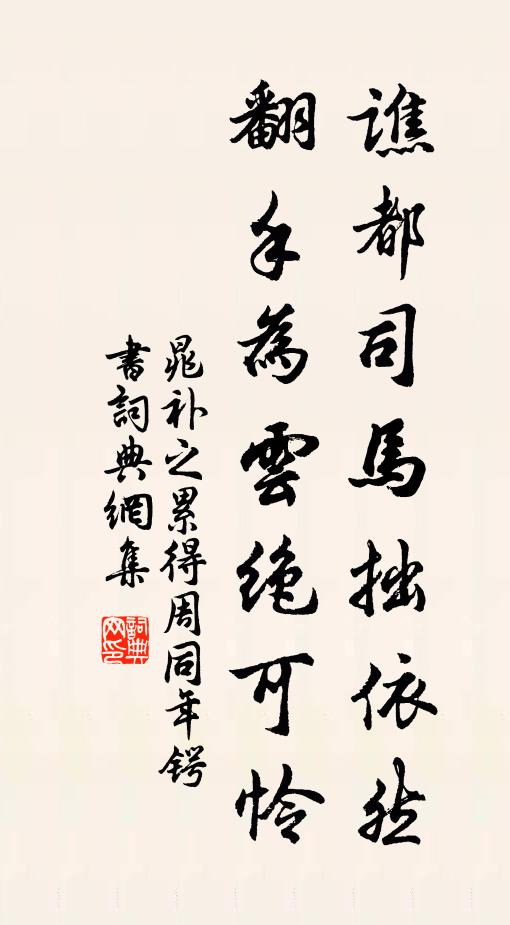 譙都司馬拙依然
翻手為雲絶可怜
晁补之累得周同年锷
書詞典網集
詞典网印